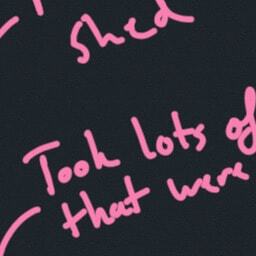 shed
Took lots of
that were